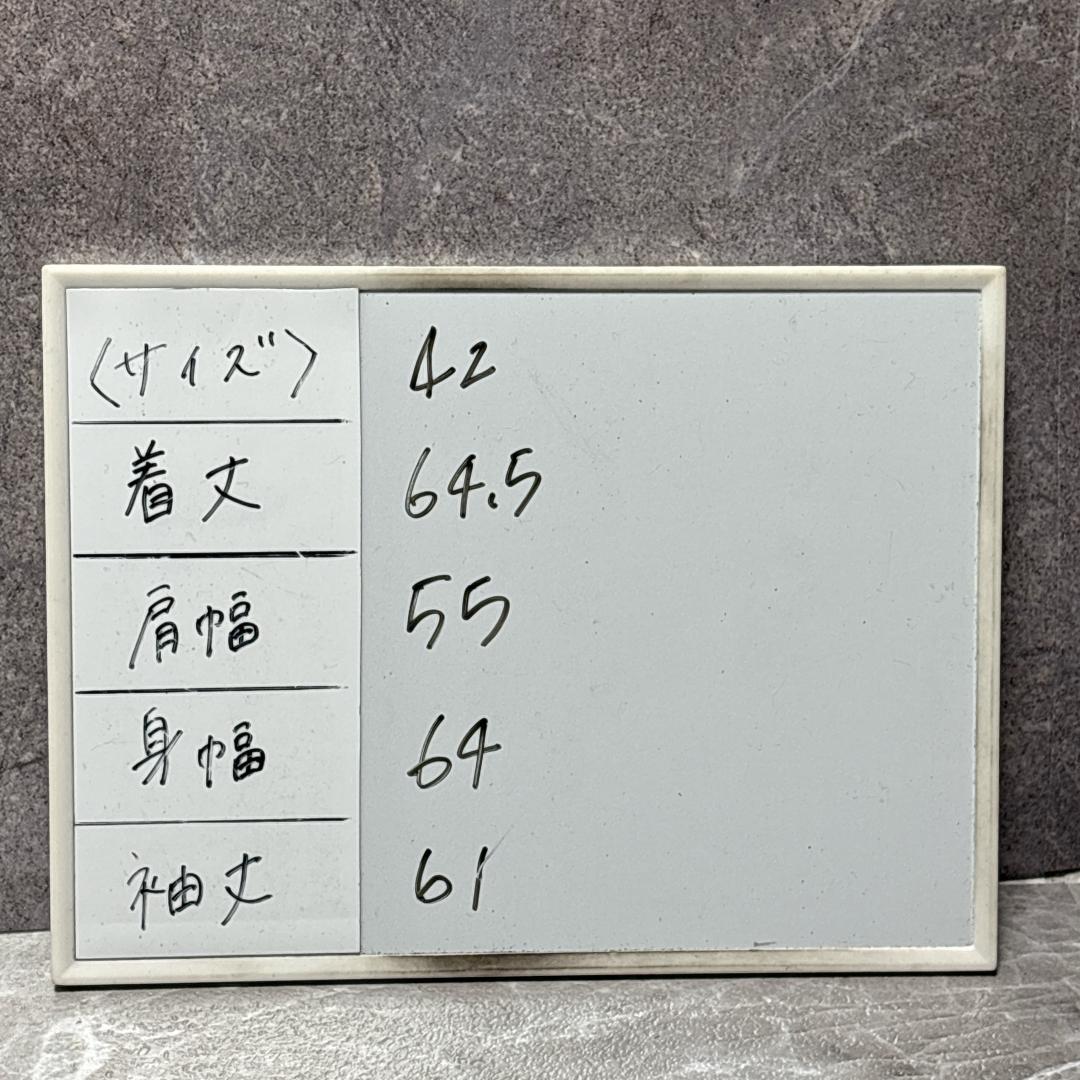 〈サイズ〉 42
着丈 64.5
肩幅 55
身幅 64
袖丈 61